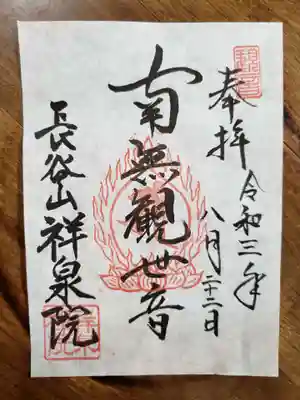 奉拝
令和三年
八月二十二日
南無観世音
長谷山祥泉院